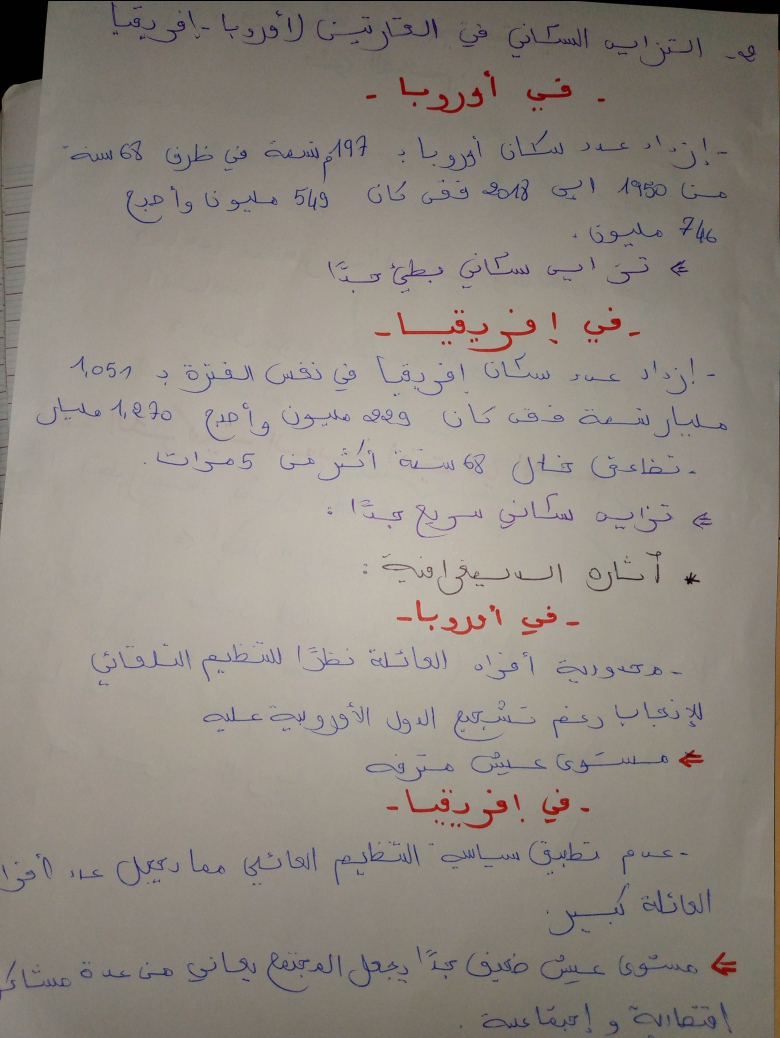 2- التزايد السكاني في القارتين (أوروبا - إفريقيا
- في أوروبا -
- إزداد عدد سكان أوروبا بـ 197م نسمة في ظرف 68 سنة
من 1950 إلى 2018 فقد كان 549 مليون وأصبح
746 مليون.
⇐ تزايد سكاني بطيئ جدًا
- في إفريقيا -
- إزداد عدد سكان إفريقيا في نفس الفترة بـ 1,051
مليار نسمة فقد كان 229 مليون وأصبح 1,270 مليار
- تضاعف خلال 68 سنة أكثر من 5 مرات.
⇐ تزايد سكاني سريع جدًا :
* آثاره الديمغرافية :
- في أوروبا -
- محدودية أفراد العائلة نظرًا للتنظيم التلقائي
للإنجاب رغم تشجيع الدول الأوروبية عليه
⇐ مستوى عيش مترفه
- في إفريقيا -
- عدم تطبيق سياسة التنظيم العائلي مما يجعل عدد أفرا
العائلة كبير.
⇐ مستوى عيش ضعيف جدًا يجعل المجتمع يعاني من عدة مشاكل
اقتصادية و إجتماعية .